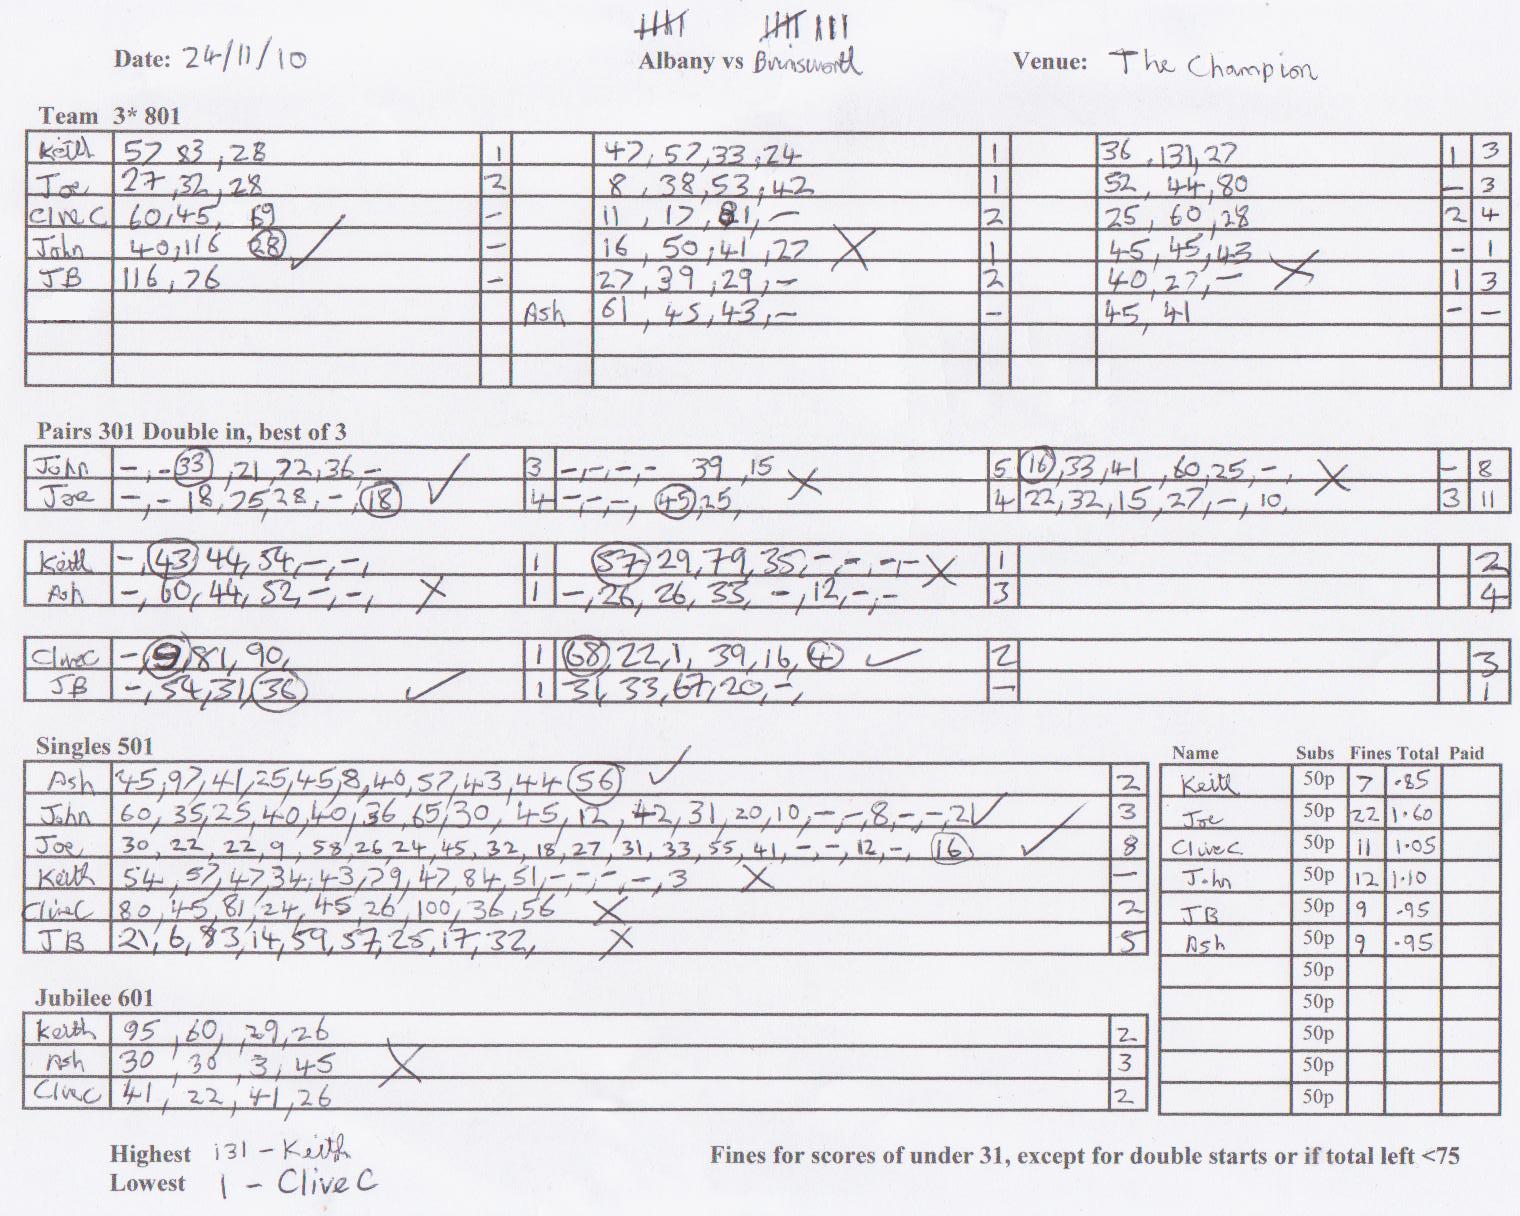 Date: 24/11/10 Albany vs Brinsworth Venue: The Champion
Team 3* 801
Keith 57 83, 28 1 47, 57, 33, 24 1 36, 131, 27 1 3
Joe 27, 32, 28 2 8, 38, 53, 42 1 52, 44, 80 - 3
Clive C 60, 45, 69 - 11, 17, 81, - 2 25, 60, 28 2 4
John 40, 116 28 ✓ - 16, 50, 41, 27 X 1 45, 45, 43 - 1
JB 116, 76 - 27, 39, 29, - 2 40, 27, - X 1 3
Ash 61, 45, 43, - - 45, 41 - -
Pairs 301 Double in, best of 3
John -, - 33, 21, 72, 36, - ✓ 3 -, -, -, - 39, 15 X 5 16, 33, 41, 60, 25, -, X - 8
Joe -, - 18, 25, 28, -, 18 4 -, -, -, 45, 25, 4 22, 32, 15, 27, -, 10, 3 11
Keith -, 43, 44, 54, -, -, 1 57 29, 79, 35, -, -, -, - X 1 2
Ash -, 60, 44, 52, -, -, X 1 -, 26, 26, 33, -, 12, -, - 3 4
Clive C -, 9, 81, 90, 1 68, 22, 1, 39, 16, 4 ✓ 2 3
JB -, 54, 31, 36 ✓ 1 31, 33, 67, 20, -, - 1
Singles 501
Ash 45, 97, 41, 25, 45, 8, 40, 57, 43, 44 56 ✓ 2
John 60, 35, 25, 40, 40, 36, 65, 30, 45, 12, 42, 31, 20, 10, -, -, 8, -, -, 2 ✓ 3
Joe 30, 22, 22, 9, 58, 26, 24, 45, 32, 18, 27, 31, 33, 55, 41, -, -, 12, -, 16 ✓ 8
Keith 54, 57, 47, 34, 43, 79, 47, 84, 51, -, -, -, -, 3 X -
Clive C 80, 45, 81, 24, 45, 26, 100, 36, 56 X 2
JB 21, 6, 83, 14, 59, 57, 25, 17, 32, X 5
Name Subs Fines Total Paid
Keith 50p 7 .85
Joe 50p 22 1.60
Clive C 50p 11 1.05
John 50p 12 1.10
JB 50p 9 .95
Ash 50p 9 .95
50p
50p
50p
50p
50p
Jubilee 601
Keith 95, 60, 29, 26 2
Ash 30, 30, 3, 45 X 3
Clive C 41, 22, 41, 26 2
Highest 131 - Keith
Lowest 1 - Clive C
Fines for scores of under 31, except for double starts or if total left <75